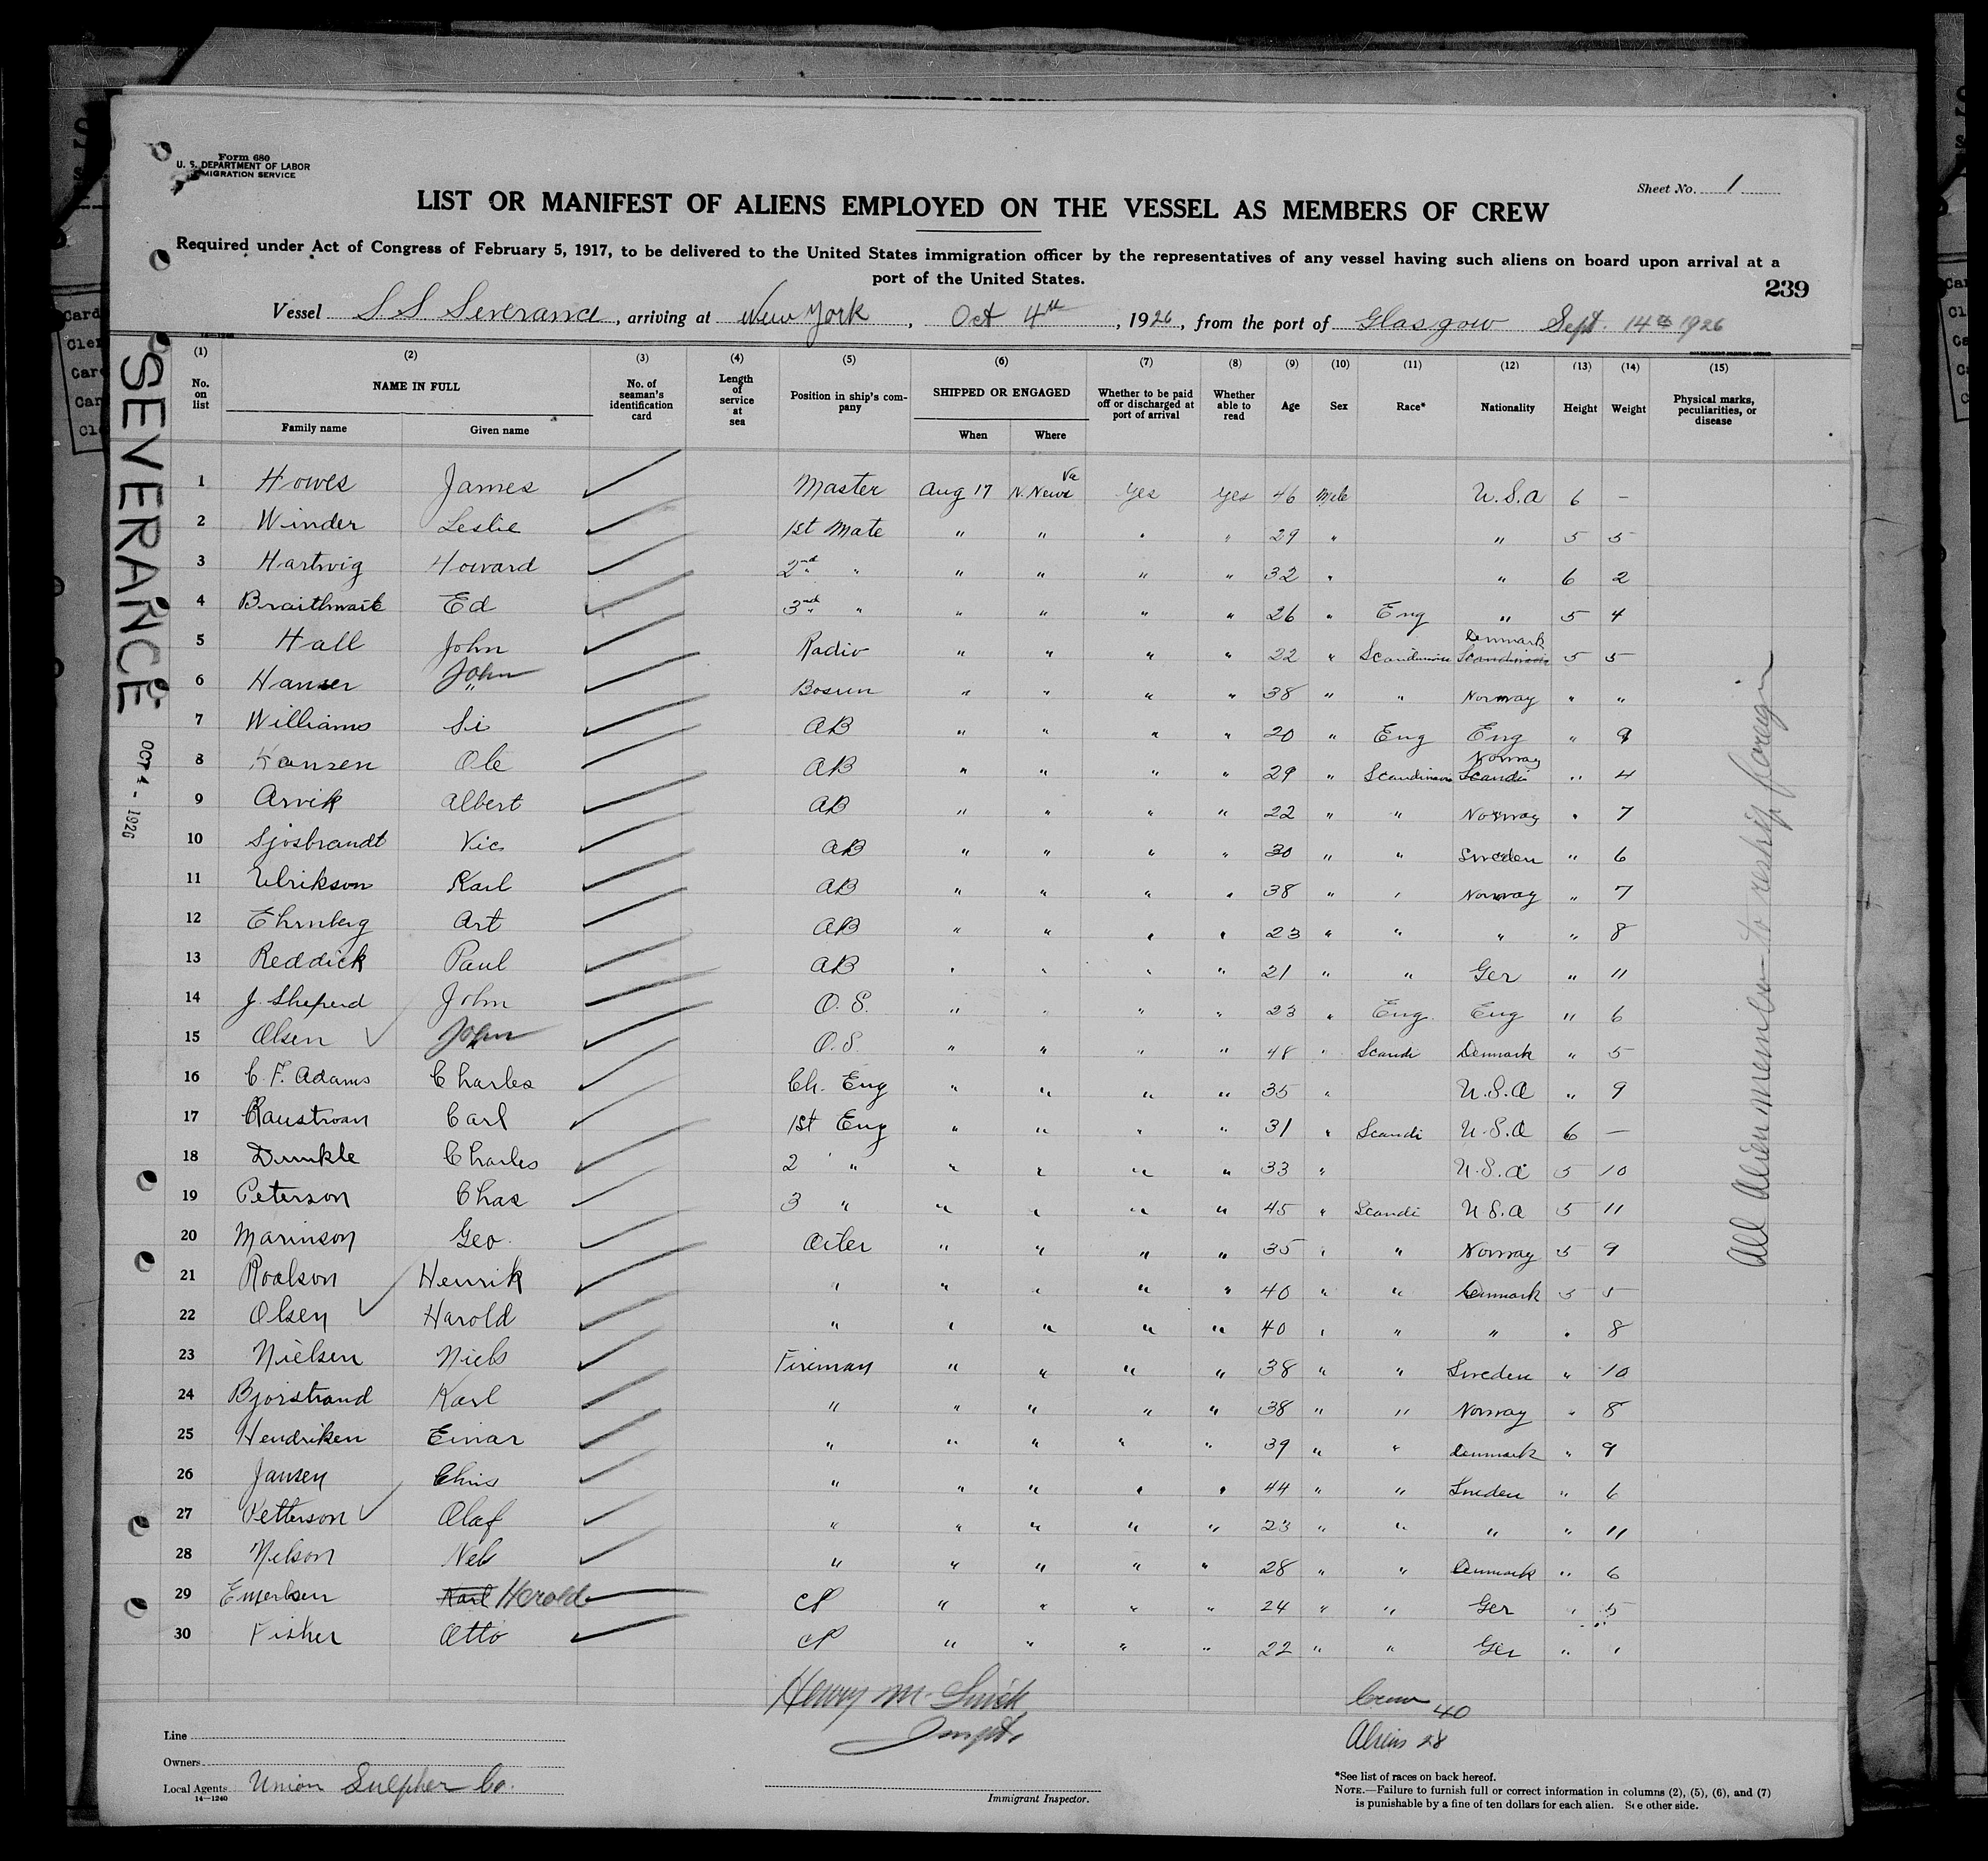 Form 680
U. S. DEPARTMENT OF LABOR
IMMIGRATION SERVICE
Sheet No. 1
LIST OR MANIFEST OF ALIENS EMPLOYED ON THE VESSEL AS MEMBERS OF CREW
Required under Act of Congress of February 5, 1917, to be delivered to the United States immigration officer by the representatives of any vessel having such aliens on board upon arrival at a
port of the United States.
239
Vessel S.S. Severance, arriving at New York, Oct 4th, 1926, from the port of Glasgow Sept. 14th 1926
SEVERANCE OCT 4 - 1926
(1) (2) (3) (4) (5) (6) (7) (8) (9) (10) (11) (12) (13) (14) (15)
No. on list NAME IN FULL No. of seaman's identification card Length of service at sea Position in ship's company SHIPPED OR ENGAGED Whether to be paid off or discharged at port of arrival Whether able to read Age Sex Race* Nationality Height Weight Physical marks, peculiarities, or disease
Family name Given name When Where
1 Howes James Master Aug 17 N. News Va Yes Yes 46 Male U.S.A 6 —
2 Winder Leslie 1st Mate " " " " 29 " " 5 5
3 Hartwig Howard 2nd " " " " " 32 " " 6 2
4 Braithwaite Ed 3rd " " " " " 26 " Eng " 5 4
5 Hall John Radio " " " " 22 " Scandinavia Denmark Scandinavia 5 5
6 Hansen John " Bosun " " " " 38 " " Norway " "
7 Williams Si AB " " " " 20 " Eng Eng " 9
8 Hansen Ole AB " " " " 29 " Scandinavia Norway Scandi " 4
9 Arvik Albert AB " " " " 22 " " Norway " 7
10 Sjosbrandt Vic AB " " " " 30 " " Sweden " 6
11 Ulrikson Karl AB " " " " 38 " " Norway " 7
12 Ehrnberg Art AB " " " " 23 " " " " 8
13 Reddick Paul AB " " " " 21 " " Ger " 11
14 J. Sheperd John O.S. " " " " 23 " Eng. Eng " 6
15 Olsen John O.S. " " " " 48 " Scandi Denmark " 5
16 C. F. Adams Charles Ch. Eng " " " " 35 " U.S.A " 9
17 Carl 1st Eng " " " " 31 " Scandi U.S.A 6 —
18 Dunkle Charles 2 " " " " " 33 " U.S.A 5 10
19 Peterson Chas 3 " " " " " 45 " Scandi U.S.A 5 11
20 Marinson Geo. Oiler " " " " 35 " " Norway 5 9
21 Roalson Henrik " " " " " 40 " " Denmark 5 5
22 Olsen Harold " " " " " 40 " " " " 8
23 Nielsen Niels Fireman " " " " 38 " " Sweden " 10
24 Bjorstrand Karl " " " " " 38 " " Norway " 8
25 Hendriken Einar " " " " " 39 " " Denmark " 9
26 Jansen Chris " " " " " 44 " " Sweden " 6
27 Petterson Olaf " " " " " 23 " " " " 11
28 Nelson Nels " " " " " 28 " " Denmark " 6
29 Karl Herold CP " " " " 24 " " Ger " 5
30 Fisher Otto CP " " " " 22 " " Ger " "
All Alien members to reship foreign
Henry
Inspt.
Crew 40
Aliens 28
Line
Owners
Local Agents Union Sulpher Co.
14—1240
Immigrant Inspector.
*See list of races on back hereof.
NOTE.—Failure to furnish full or correct information in columns (2), (5), (6), and (7)
is punishable by a fine of ten dollars for each alien. See other side.